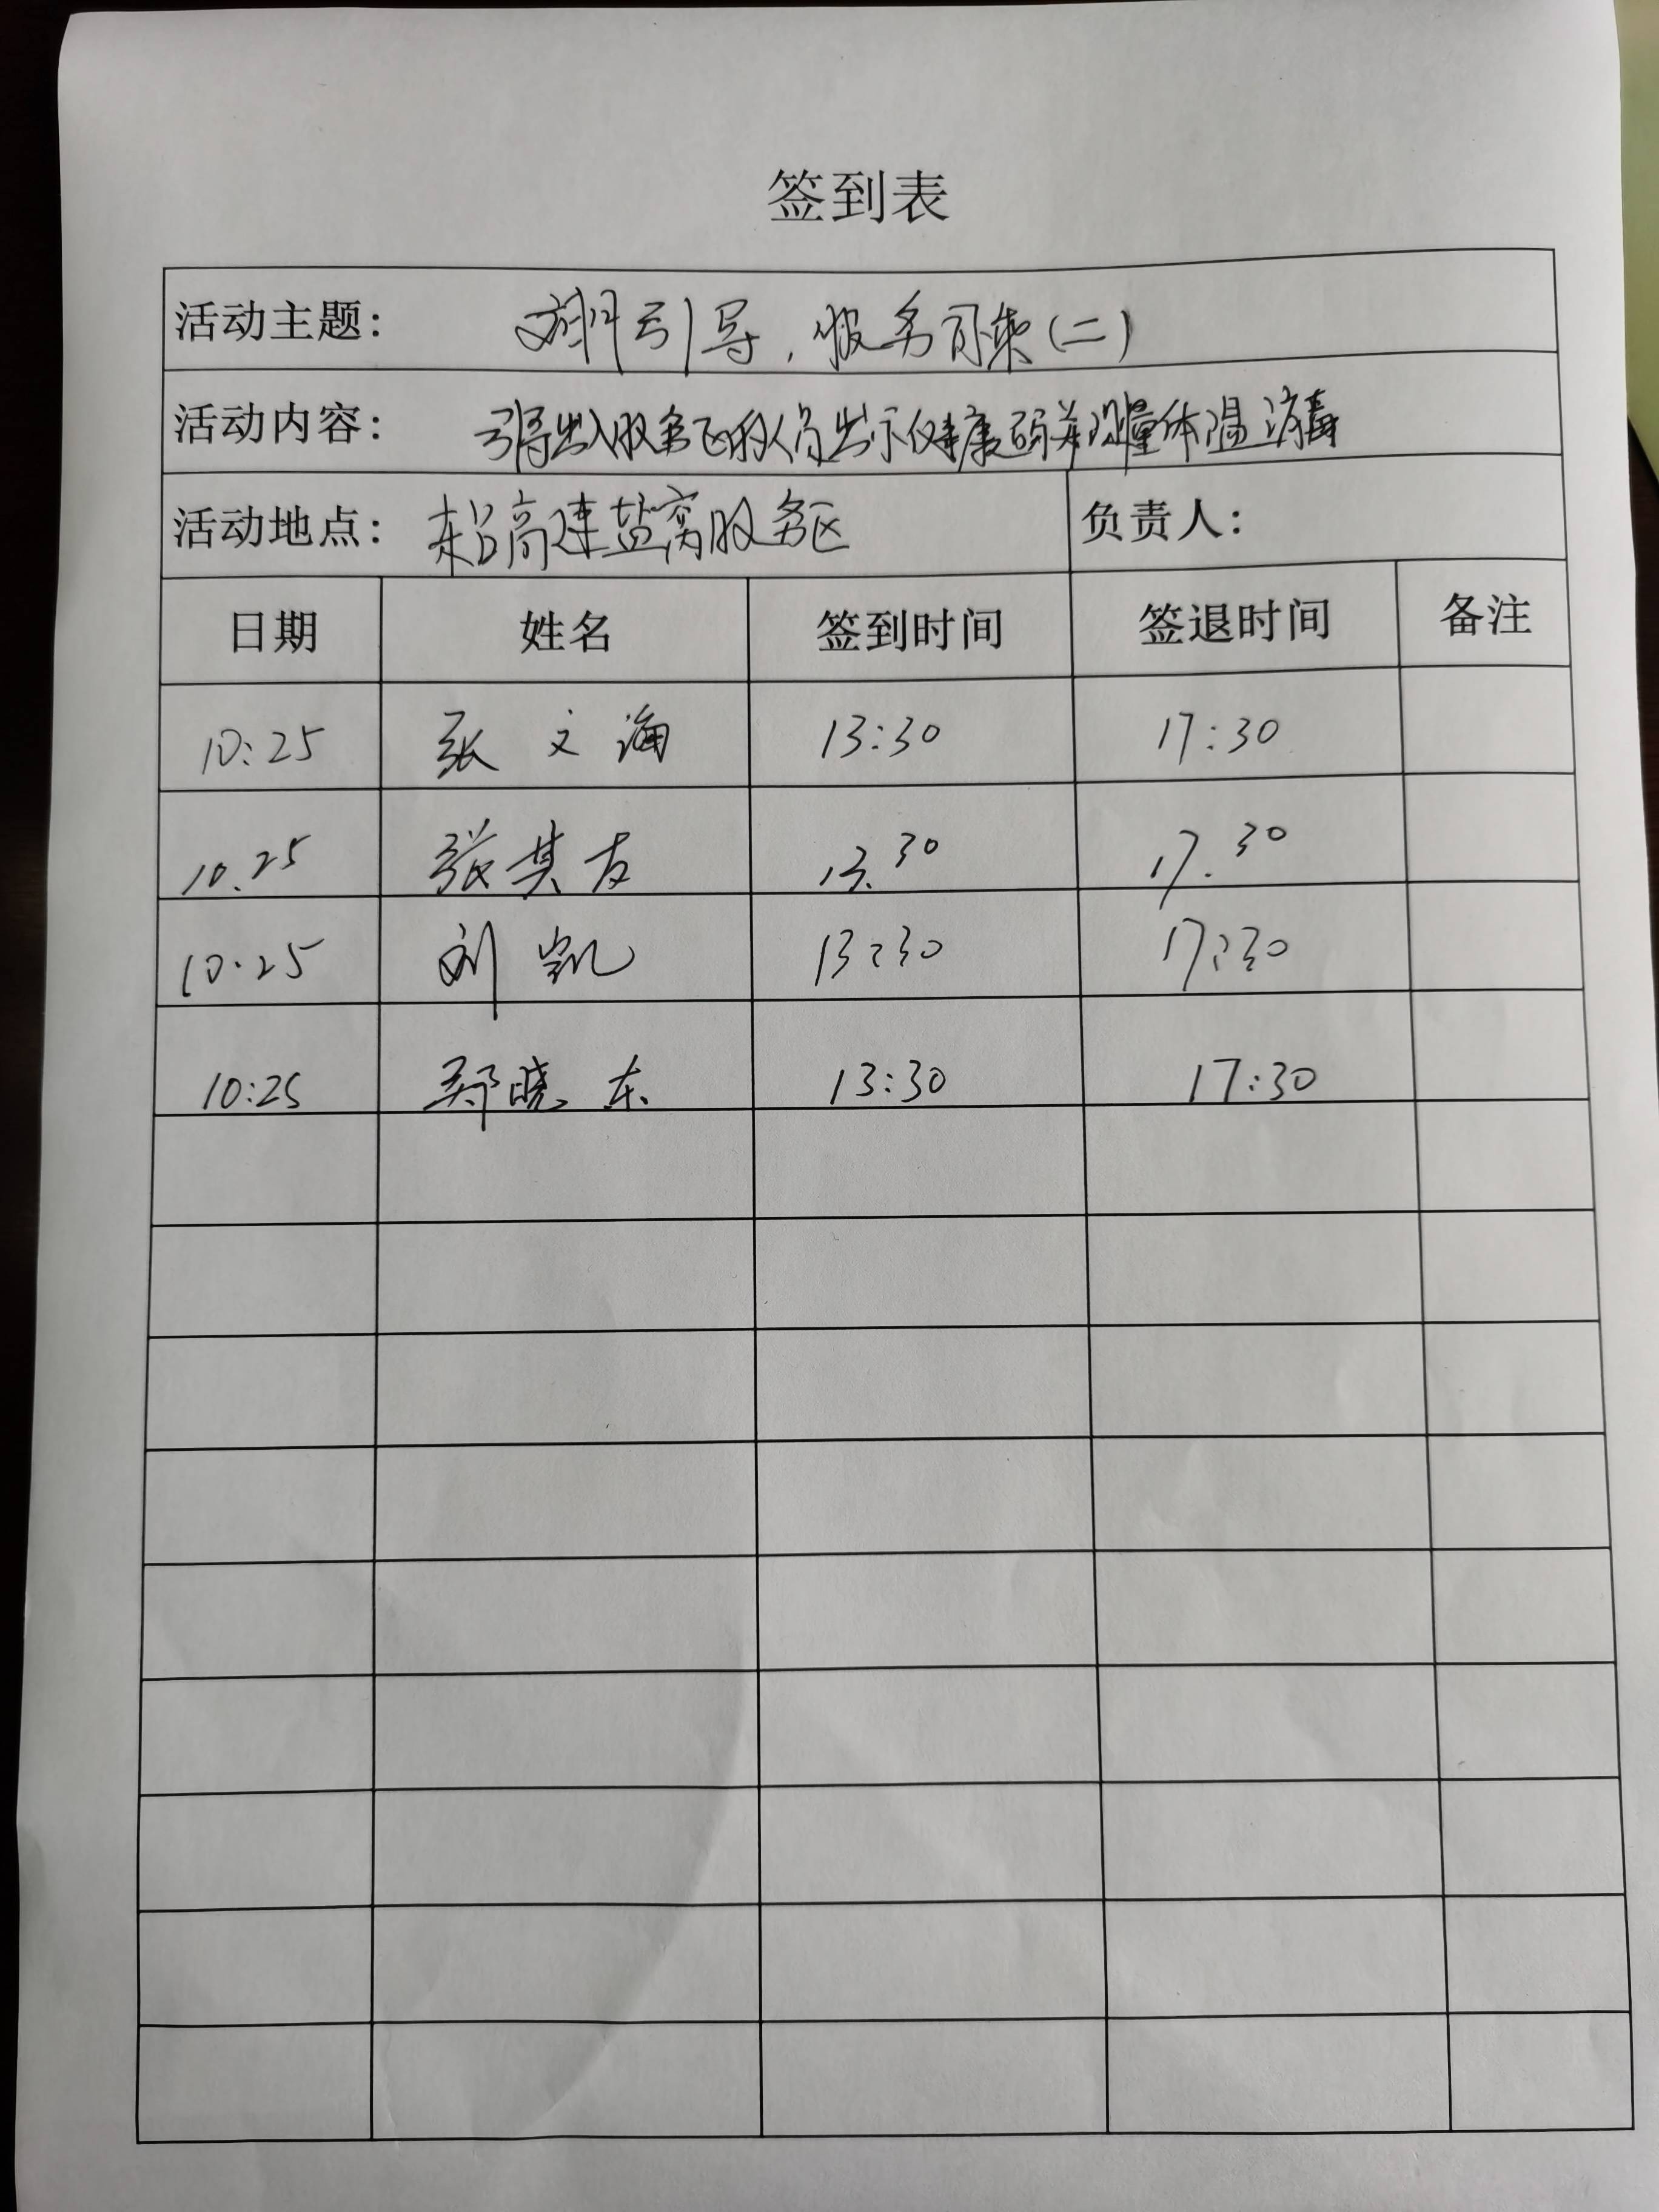 签到表
活动主题: 引导,服务司乘(二)
活动内容: 引导出入服务区的人员出示健康码并测量体温消毒
活动地点: 高速盐窝服务区 负责人:
日期 姓名 签到时间 签退时间 备注
10:25 张文海 13:30 17:30
10.25 张其友 13.30 17.30
10.25 刘凯 13:30 17:30
10:25 郑晓东 13:30 17:30